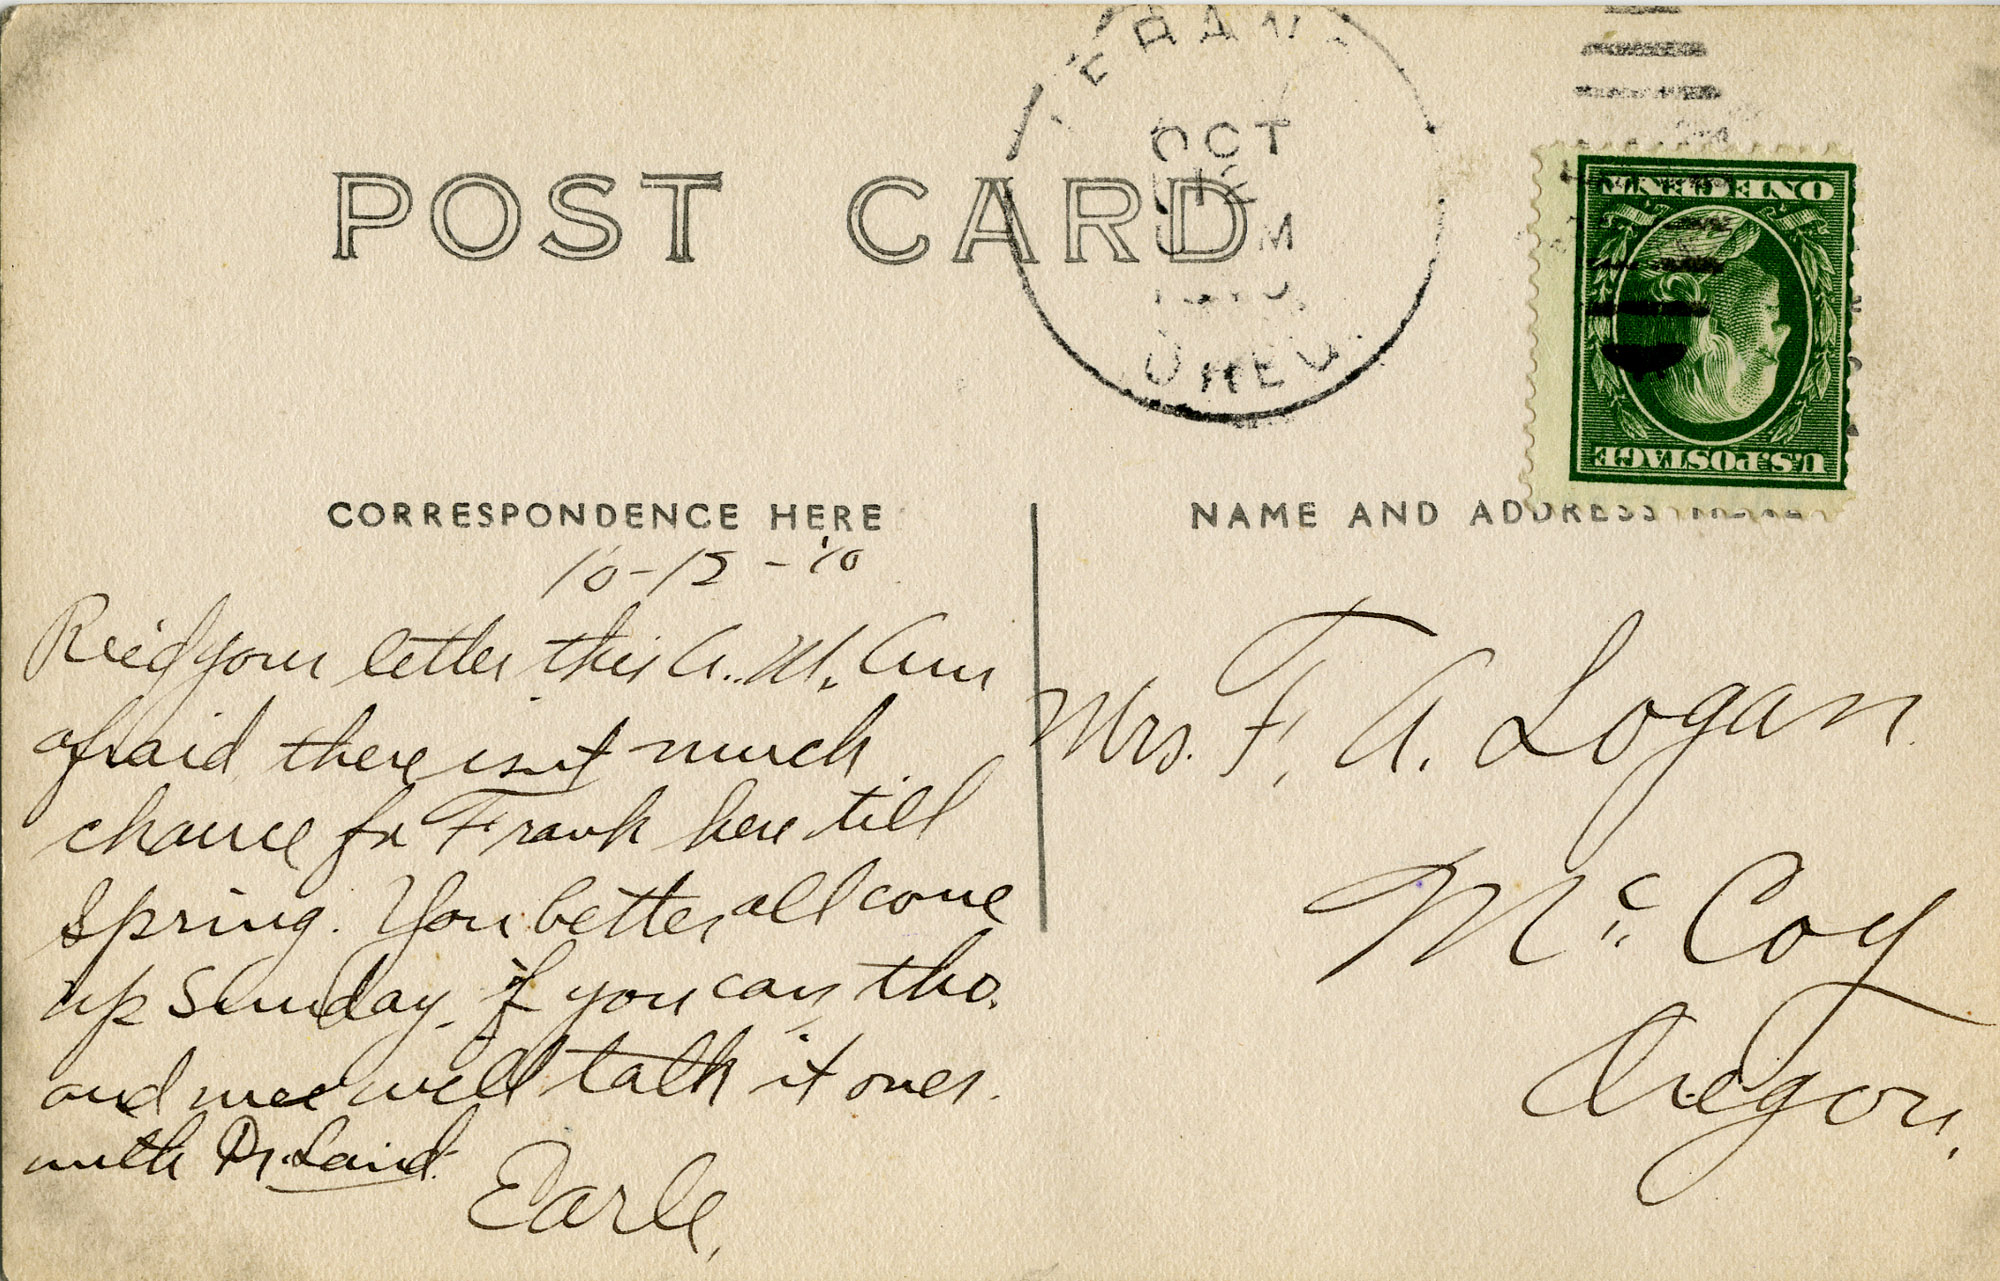 POST CARD
OCT
12
M
OREG.
ONE CENT
U.S. POSTAGE
CORRESPONDENCE HERE
NAME AND ADDRESS HERE
10-12-'10
Rec'd your letter this A.M. Am
afraid there isn't much
chance for Frank here till
spring. You better all come
up Sunday, if you can, tho.
and we will talk it over.
with Dr. Laird.
Earle.
Mrs. F. A. Logan.
Mc Coy
Oregon.